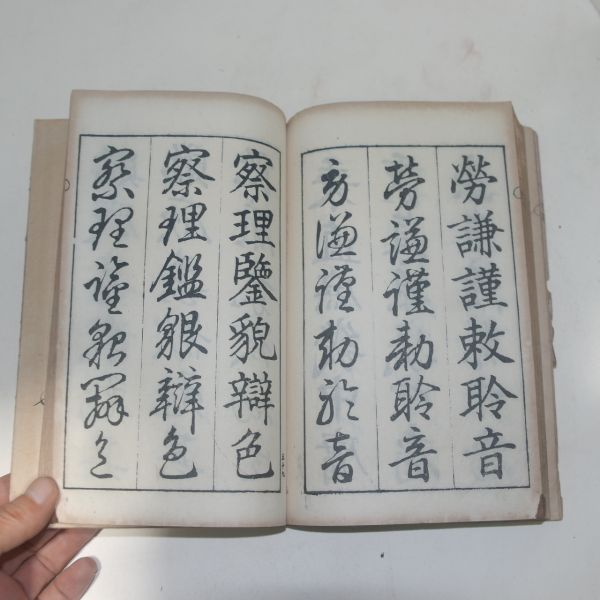 勞謙謹敕聆音
勞謙謹勅聆音
勞謙謹勅聆音
察理鑒貌辯色
察理鑑貌辯色
察理鑒貌辯色